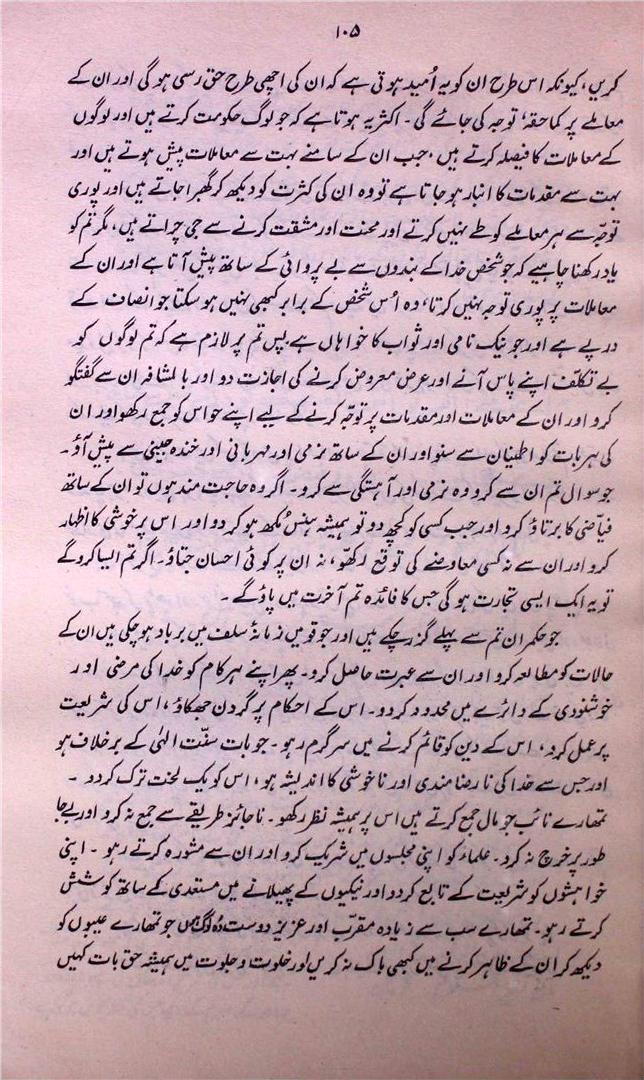 ۱۰۵
کریں، کیونکہ اس طرح ان کو یہ اُمید ہوتی ہے کہ ان کی اچھی طرح حق رسی ہوگی اور ان کے
معاملے پر کماحقہٗ توجہ کی جائے گی۔ اکثر یہ ہوتا ہے کہ جو لوگ حکومت کرتے ہیں اور لوگوں
کے معاملات کا فیصلہ کرتے ہیں، جب ان کے سامنے بہت سے معاملات پیش ہوتے ہیں اور
بہت سے مقدمات کا انبار ہو جاتا ہے تو وہ ان کی کثرت کو دیکھ کر گھبرا جاتے ہیں اور پوری
توجّہ سے ہر معاملے کو طے نہیں کرتے اور محنت اور مشقت کرنے سے جی چراتے ہیں، مگر تم کو
یاد رکھنا چاہیے کہ جو شخص خدا کے بندوں سے بے پروائی کے ساتھ پیش آتا ہے اور ان کے
معاملات پر پوری توجہ نہیں کرتا، وہ اُس شخص کے برابر کبھی نہیں ہو سکتا جو انصاف کے
درپے ہے اور جو نیک نامی اور ثواب کا خواہاں ہے۔ پس تم پر لازم ہے کہ تم لوگوں کو
بے تکلّف اپنے پاس آنے اور عرض معروض کرنے کی اجازت دو اور بالمشافہ ان سے گفتگو
کرو اور ان کے معاملات اور مقدمات پر توجّہ کرنے کے لیے اپنے حواس کو جمع رکھو اور ان
کی ہر بات کو اطمینان سے سنو اور ان کے ساتھ نرمی اور مہربانی اور خندہ جبینی سے پیش آؤ۔
جو سوال تم ان سے کرو وہ نرمی اور آہستگی سے کرو۔ اگر وہ حاجت مند ہوں تو ان کے ساتھ
فیّاضی کا برتاؤ کرو اور جب کسی کو کچھ دو تو ہمیشہ ہنس مُکھ ہو کر دو اور اس پر خوشی کا اظہار
کرو اور ان سے نہ کسی معاوضے کی توقع رکھّو، نہ ان پر کوئی احسان جتاؤ۔ اگر تم ایسا کرو گے
تو یہ ایک ایسی تجارت ہوگی جس کا فائدہ تم آخرت میں پاؤ گے۔
جو حکمران تم سے پہلے گزر چکے ہیں اور جو قومیں زمانۂ سلف میں برباد ہو چکی ہیں ان کے
حالات کو مطالعہ کرو اور ان سے عبرت حاصل کرو۔ پھر اپنے ہر کام کو خدا کی مرضی اور
خوشنودی کے دائرے میں محدود کر دو۔ اس کے احکام پر گردن جھکاؤ، اس کی شریعت
پر عمل کرو، اس کے دین کو قائم کرنے میں سرگرم رہو۔ جو بات سنّت الہٰی کے برخلاف ہو
اور جس سے خدا کی نارضامندی اور ناخوشی کا اندیشہ ہو، اس کو یک لخت ترک کر دو۔
تمھارے نائب جو مال جمع کرتے ہیں اس پر ہمیشہ نظر رکھو۔ ناجائز طریقے سے جمع نہ کرو اور بےجا
طور پر خرچ نہ کرو۔ علماء کو اپنی مجلسوں میں شریک کرو اور ان سے مشورہ کرتے رہو۔ اپنی
خواہشوں کو شریعت کے تابع کر دو اور نیکیوں کے پھیلانے میں مستعدی کے ساتھ کوشش
کرتے رہو۔ تمھارے سب سے زیادہ مقرّب اور عزیز دوست وہ لوگ ہیں جو تمھارے عیبوں کو
دیکھ کر ان کے ظاہر کرنے میں کبھی باک نہ کریں اور خلوت و جلوت میں ہمیشہ حق بات کہیں